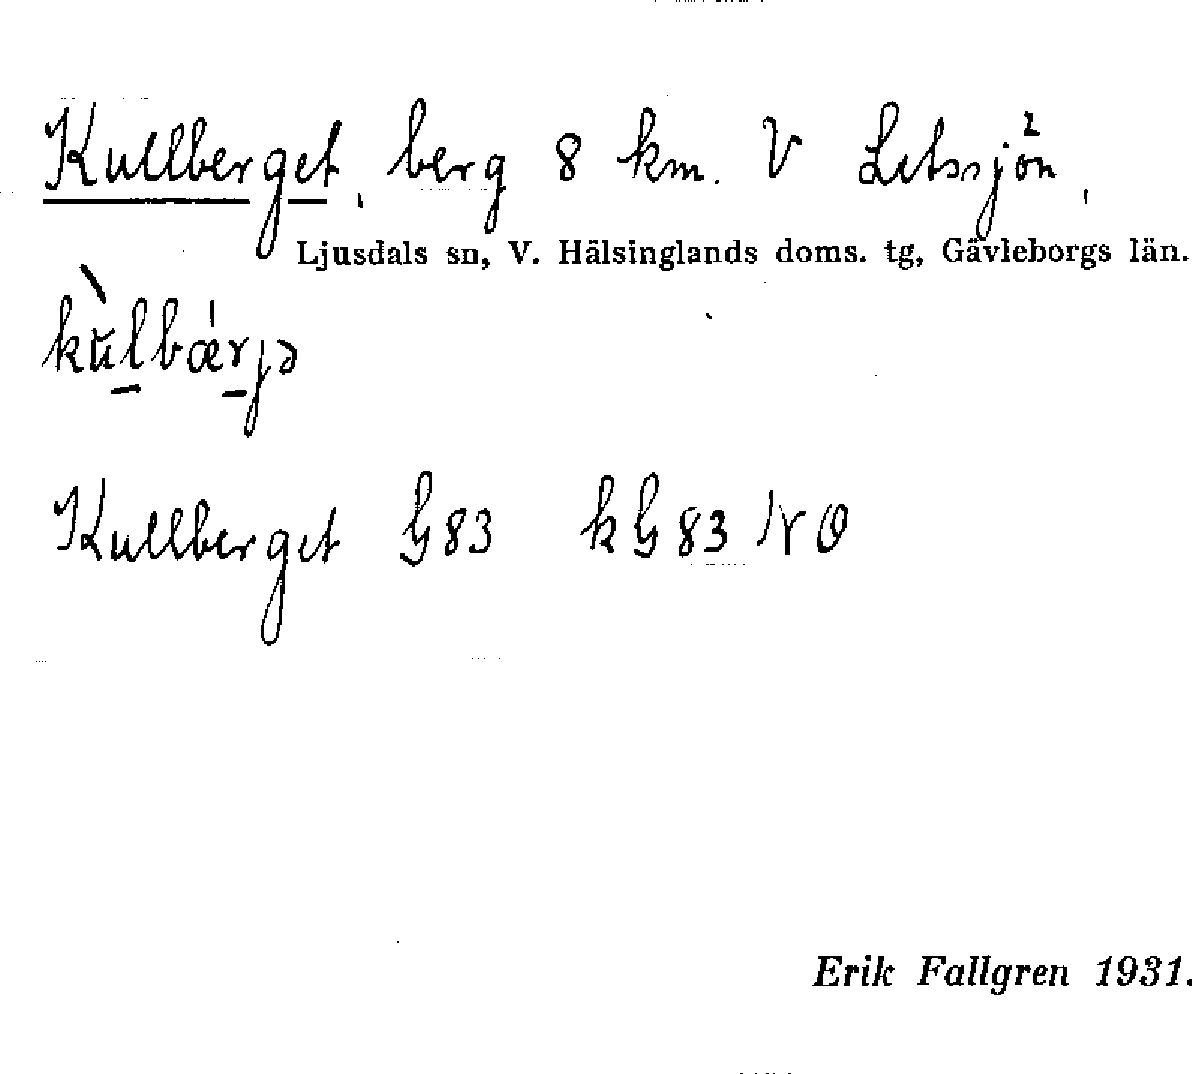 Kullberget, berg 8 km. V Letssjön,
Ljusdals sn, V. Hälsinglands doms. tg, Gävleborgs län.
kùlbærjə
Kullberget G83 kG83 NO
Erik Fallgren 1931.